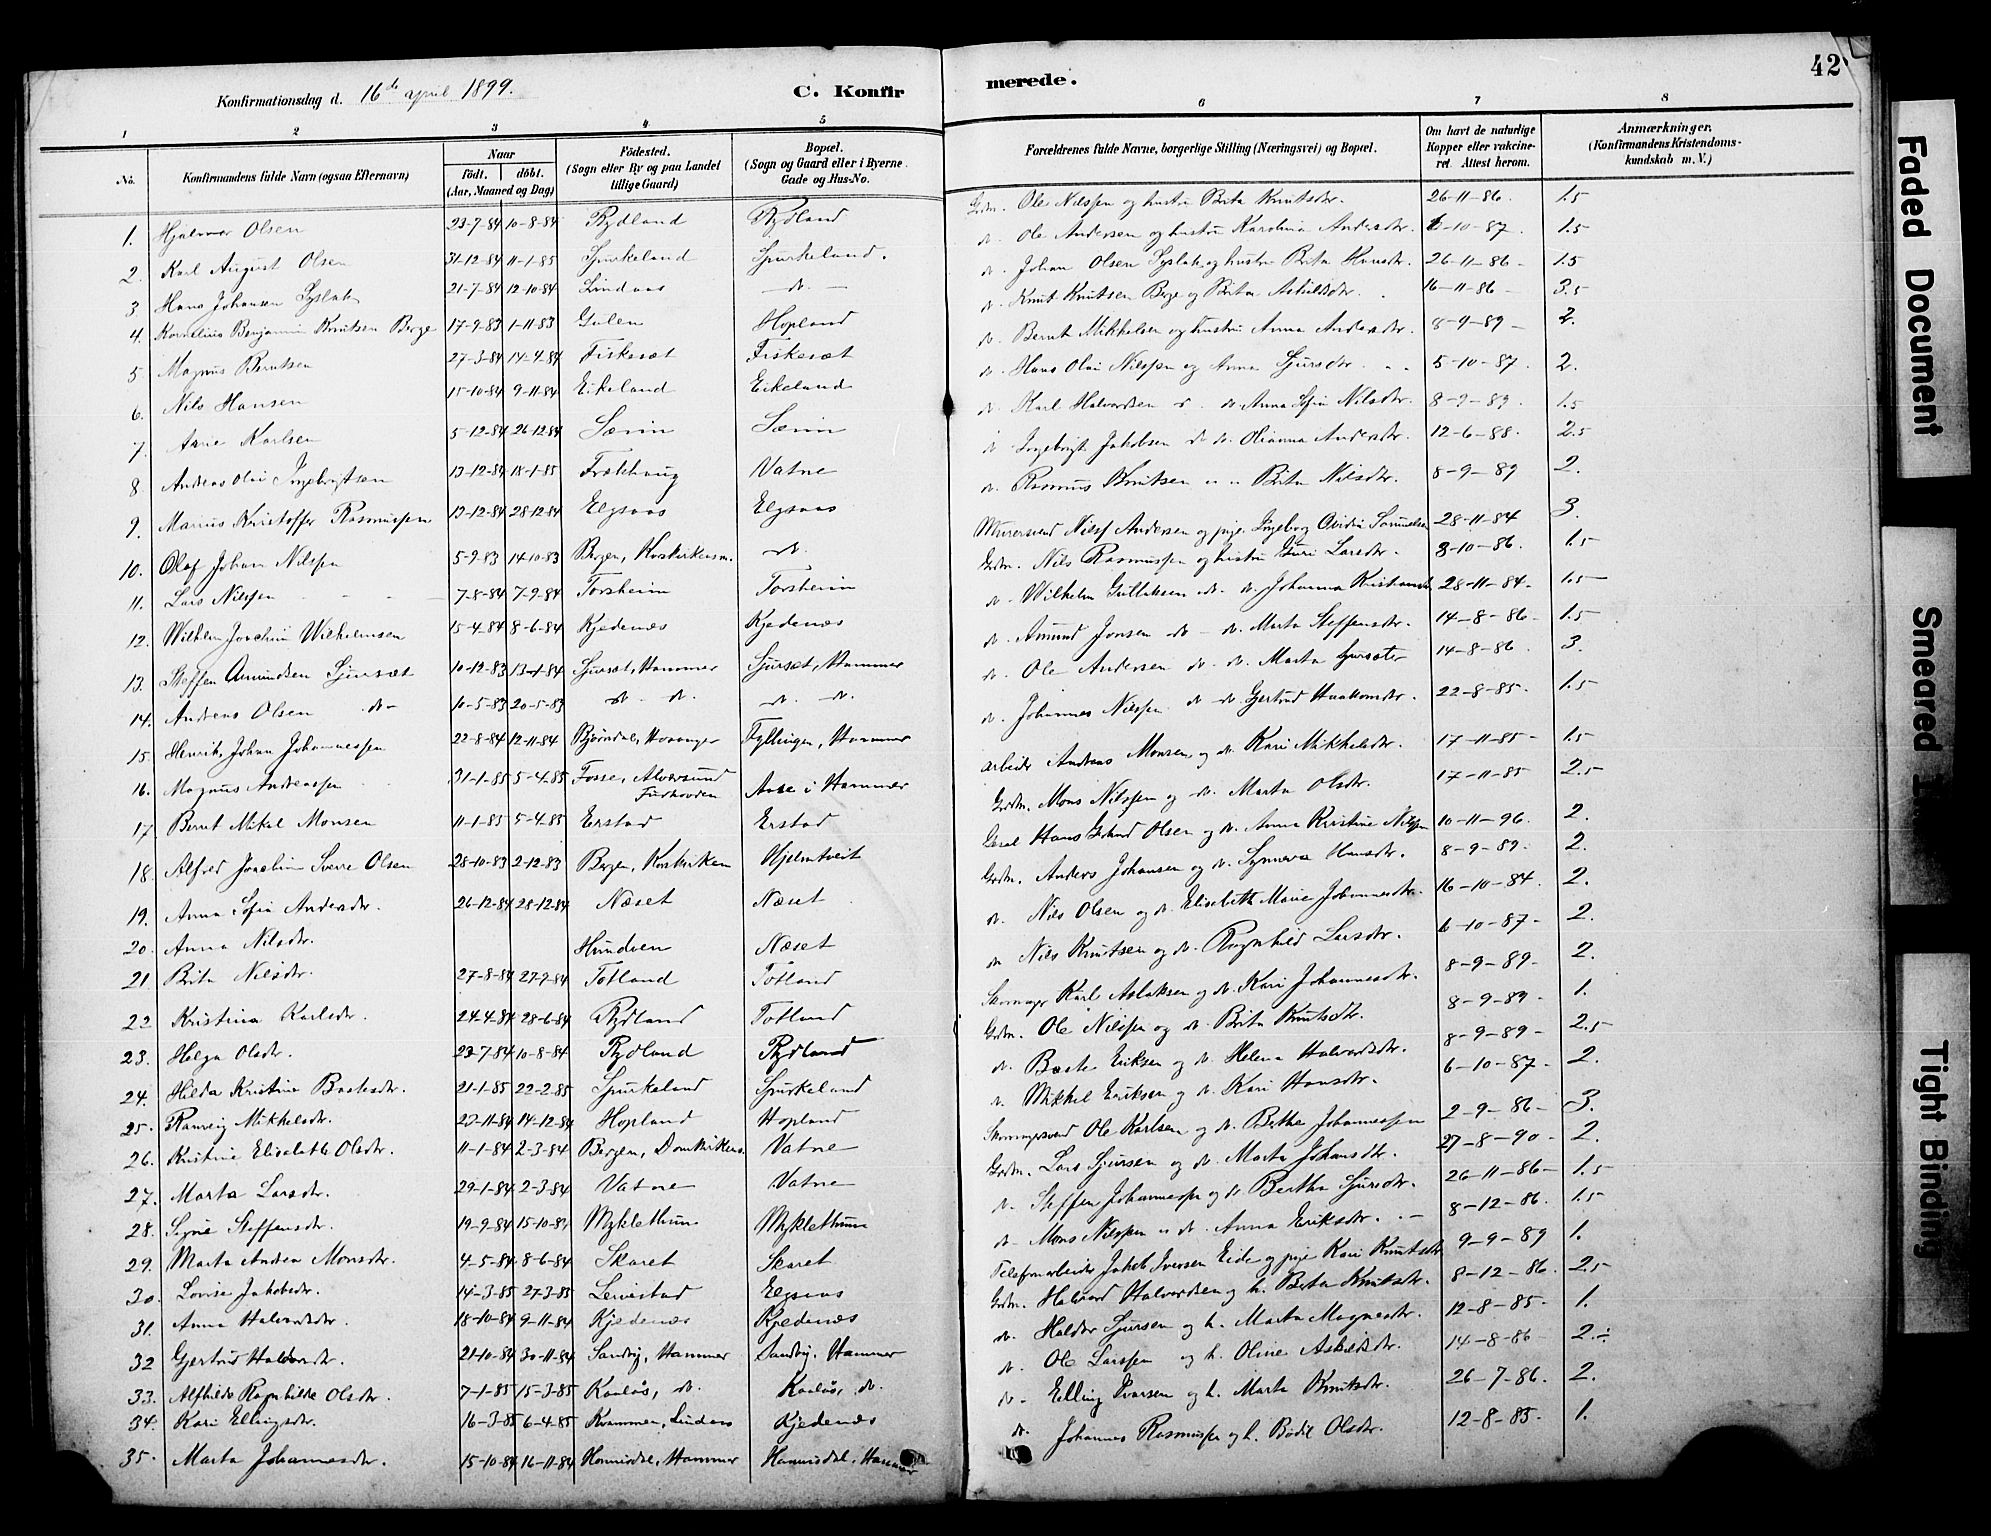 Konfirmationsdag d. 16de april 1899.
C. Konfirmerede.
42
1 2 3 4 5 6 7 8
No.
Konfirmandens fulde Navn (ogsaa Efternavn)
Naar
födt. döbt.
(Aar, Maaned og Dag)
Födested.
(Sogn eller By og paa Landet tillige Gaard)
Bopæl.
(Sogn og Gaard eller i Byerne Gade og Hus-No.
Forældrenes fulde Navne, borgerlige Stilling (Næringsvei) og Bopæl.
Om havt de naturlige Kopper eller vakcineret. Attest herom.
Anmærkninger.
(Konfirmandens Kristendomskundskab m. V.)
1. Hjalmar Olsen 23-7-84 10-8-84 Rydland Rydland Grdm. Ole Nilssen og hustru Brita Knutsdtr. 26-11-86. 1.5
2. Karl August Olsen 31-12-84 11-1-85 Spurkeland Spurkeland. d. Ole Andersen og hustru Karolina Andersdtr. 6-10-87. 1.5
3 Hans Johansen Syslak 21-7-84 12-10-84 Lindaas d. d. Johan Olsen Syslak og hustru Brita Hansdtr. 26-11-86 1.5
4. Kornelius Benjamin Knutsen Berge 17-9-83 1-11-83 Gulen Hopland d. Knut Knutsen Berge og Brita 16-11-86 3.5
5 Magnus Berntsen 27-3-84 14-4-84 Fiskesæt Fiskesæt d. Bernt Mikkelsen og hustru Anna Andersdtr. 8-9-89 2.
6. Nils Hansen 15-10-84 9-11-84 Eikeland Eikeland d. Hans Olai Nilssen og Anna Sjursdtr. 5-10-87. 2.
7 Karlsen 5-12-84 26-12-84 Særvin Særvin d. Karl Halvardsen d. Anna Sofia Nilsdtr. 8-9-89. 1.5
8 Andreas Olai Ingebrigtsen 13-12-84 18-1-85 Vatne d. Ingebrigt Jakobsen d. d. Olianna Andersdtr. 12-6-88. 2.5
9. Marius Kristoffer Rasmussen 13-12-84 28-12-84 Elgsaas Elgsaas d. Rasmus Knutsen Brita Nilsdtr. 8-9-89 2.
10. Olaf Johan Nilssen 5-9-83 14-10-83 Bergen, Korskirkens. d. Murersvend Andersen og pige Ingeborg 28-11-84 3.
11. Lars Nilssen 7-8-84 7-9-84 Torsheim Torsheim Grdm. Nils Rasmussen og hustru Guri Larsdtr. 3-10-86. 1.5
12. Wilhelm Joachim Wilhelmsen 15-4-84 8-6-84 Kjedenæs Kjedenæs d. Wilhelm Gulliksen d. d. Johanna 28-11-84. 1.5
13. Steffen Amundsen Sjursæt 10-12-83 13-1-84 Sjursæt, Hammer Sjursæt, Hammer d. Amund Jonsen d. d. Marta Steffensdtr. 14-8-86. 1.5
14. Andreas Olsen d. 10-5-83 20-5-83 d. d. d. d. d. Ole Andersen d. d. Marta 14-8-86. 3.
15. Henrik Johan Johannessen 22-8-84 12-11-84 Bjørndal, Fyllingen, Hammer d. Johannes Nilssen d. d. Gjertrud Haakonsdtr. 22-8-85. 1.5
16. Magnus Andreassen 31-1-85 5-4-85 Fosse, Alversund Aase i Hammer arbeider Andreas Monsen og d. Kari Mikkelsdtr. 17-11-85 1.5
17 Bernt Mikal Monsen 11-1-85 5-4-85 Erstad Erstad Grdm. Mons Nilssen og d. Marta Olsdtr. 17-11-85 2.5
18. Alfred Joachim Sverre Olsen 28-10-83 2-12-83 Bergen, Korskirken Hjelmtveit Hans Olsen og d. Anna Kristine Nilssen 10-11-96. 2.
19. Anna Sofia Andersdtr. 26-12-84 28-12-84 Næset Næset Grdm. Anders Johansen og d. Synneva Hansdtr. 8-9-89. 2.
20. Anna Nilsdtr. Hundven Næset d. Nils Olsen og d. Elisabeth Marie Johannesdtr. 16-10-84. 2.
21 Brita Nilsdtr. 27-8-84 27-9-84 Totland Totland d. Nils Knutsen og d. Ragnhild Larsdtr. 6-10-87 2.
22 Kristina Karlsdtr. 24-4-84 28-6-84 Rydland Totland Skomager Karl Aslaksen og d. Kari Johannesdtr. 8-9-89. 2.
23. Helga Olsdtr. 23-7-84 10-8-84 Rydland Rydland Grdm. Ole Nilssen og d. Brita Knutsdtr. 8-9-89 1.
24. Hilda Kristine Baatesdtr. 21-1-85 22-2-85 Spurkeland Spurkeland d. Eriksen og d. Helena Halvardsdtr. 8-9-89 2.5
25. Ranveig Mikkelsdtr. 23-11-84 14-12-84 Hopland Hopland d. Mikkel Eriksen og d. Kari Hansdtr. 6-10-87. 2.
26. Kristine Elisabeth Olsdtr. 11-1-84 2-3-84 Bergen, Domkirkens. Vatne Skomagersvend Ole Karlsen og d. Berthe Johannessen 2-9-86 3.
27. Marta Larsdtr. 29-1-84 2-3-84 Vatne Vatne Grdm. Lars Sjursen og d. Marta Johansdtr. 27-8-90 2.
28. Signe Steffensdtr. 19-9-84 15-10-84 Myklethun Myklethun d. Steffen Johannessen og d. Bertha Sjursdtr. 26-11-86 1.5
29. Marta Andrea Monsdtr. 4-5-84 8-6-84 Skaret Skaret d. Mons Nilssen d. Anna Eriksdtr. 8-12-86. 1.5
30. Lovise Jakobsdtr. 14-3-85 27-3-85 Leivestad Elgsaas Telefonarbeider Jakob Iversen Eide og pige Kari Knutsdtr 9-9-89 1.
31. Anna Halvardsdtr. 18-10-84 9-11-84 Kjedenæs Kjedenæs Grdm. Halvard Halvardsen og h. Berta Knutsdtr. 8-12-86. 2.5
32 Gjertrud Haldorsdtr. 21-10-84 30-11-84 Sandvig, Hammer Sandvig, Hammer d. Haldor Sjursen og h. Marta Magnesdtr. 12-8-85. 1.
33. Alfhilde Ragnhilde Olsdtr. 7-1-85 15-3-85 Kaalås, d. Kaalås, d. d. Ole Larssen og h. Oline Askildsdtr. 14-8-86 2.÷
34. Kari Ellingsdtr. 16-3-85 6-4-85 Kvammen, Lindaas Kjedenæs d. Elling Ivarsen og h. Marta Knutsdtr. 26-7-86. 2.
35. Marta Johannesdtr. 15-10-84 16-11-84 Hannisdal, Hammer Hannisdal, Hammer d. Johannes Rasmussen og h. Bodil Olsdtr. 12-8-85. 1.
Faded Document
Smeared
Tight Binding